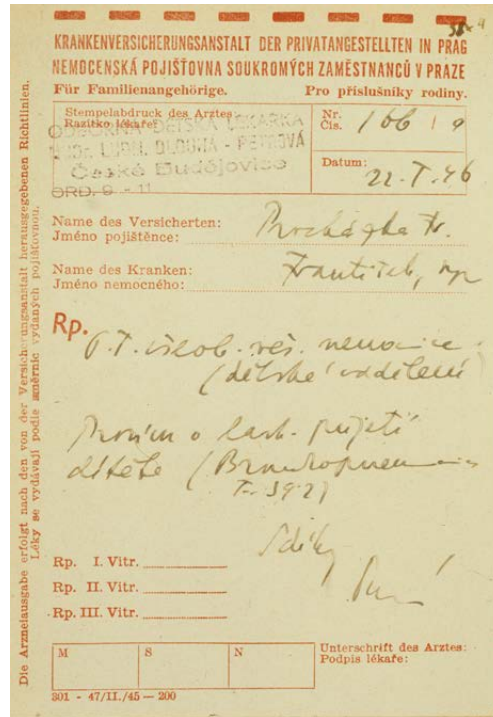 38 x 4
KRANKENVERSICHERUNGSANSTALT DER PRIVATANGESTELLTEN IN PRAG
NEMOCENSKÁ POJIŠŤOVNA SOUKROMÝCH ZAMĚSTNANCŮ V PRAZE
Für Familienangehörige. Pro příslušníky rodiny.
Stempelabdruck des Arztes:
Razítko lékaře:
ODBORNÁ DĚTSKÁ LÉKAŘKA
MUDr. LUDM.
České Budějovice
ORD. 9 - 11
Nr.
Čís. 106 9
Datum:
22. I. 46
Name des Versicherten:
Jméno pojištěnce: Procházka Fr.
Name des Kranken:
Jméno nemocného: František,
Rp.
všeob. nemocnice
(dětské oddělení)
Prosím o lask. přijetí
dítěte (Bronchopneumonie
T. 39.2)
Díky
Rp. I. Vitr.
Rp. II. Vitr.
Rp. III. Vitr.
M S N
Unterschrift des Arztes:
Podpis lékaře:
301 - 47/II./45 — 200
Die Arzneiausgabe erfolgt nach den von der Versicherungsanstalt herausgegebenen Richtlinien.
Léky se vydávají podle směrnic vydaných pojišťovnou.